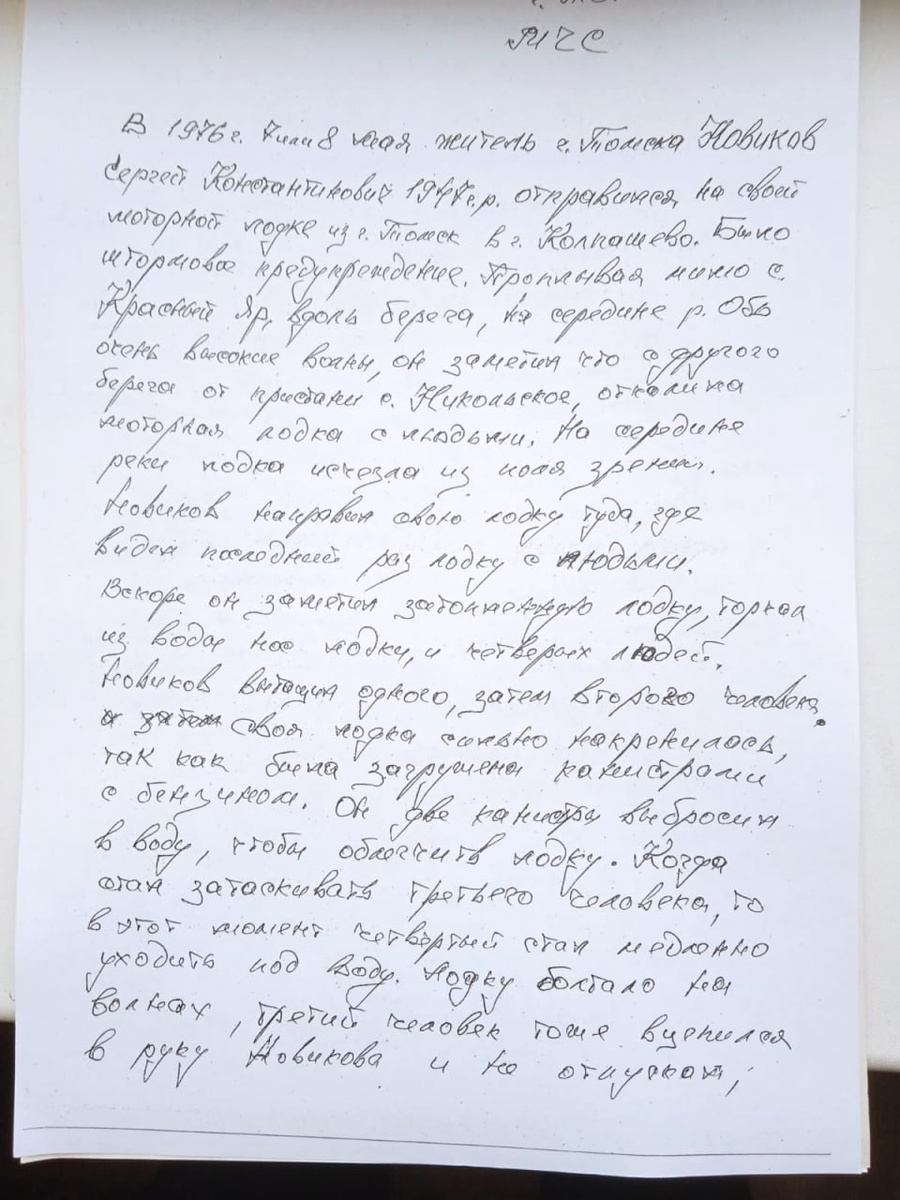 МЧС
В 1976 г. 7 или 8 мая житель г. Томска Новиков
Сергей Константинович 1947 г.р. отправился на своей
моторной лодке из г. Томск в г. Колпашево. Было
штормовое предупреждение. Проплывая мимо с.
Красный Яр, вдоль берега, на середине р. Обь
очень высокие волны, он заметил что с другого
берега от пристани с. Никольское, отчалила
моторная лодка с людьми. На середине
реки лодка исчезла из поля зрения.
Новиков направил свою лодку туда, где
видел последний раз лодку с людьми.
Вскоре он заметил затонленную лодку, торчал
из воды нос лодки, и четверых людей.
Новиков вытащил одного, затем второго человека.
и затем своя лодка сильно накренилась,
так как была загружена канистрами
с бензином. Он две канистры выбросил
в воду, чтобы облегчить лодку. Когда
стал затаскивать третьего человека, то
в этот момент четвёртый стал медленно
уходить под воду. Лодку болтало на
волнах, третий человек тоже вцепился
в руку Новикова и не отпускал,